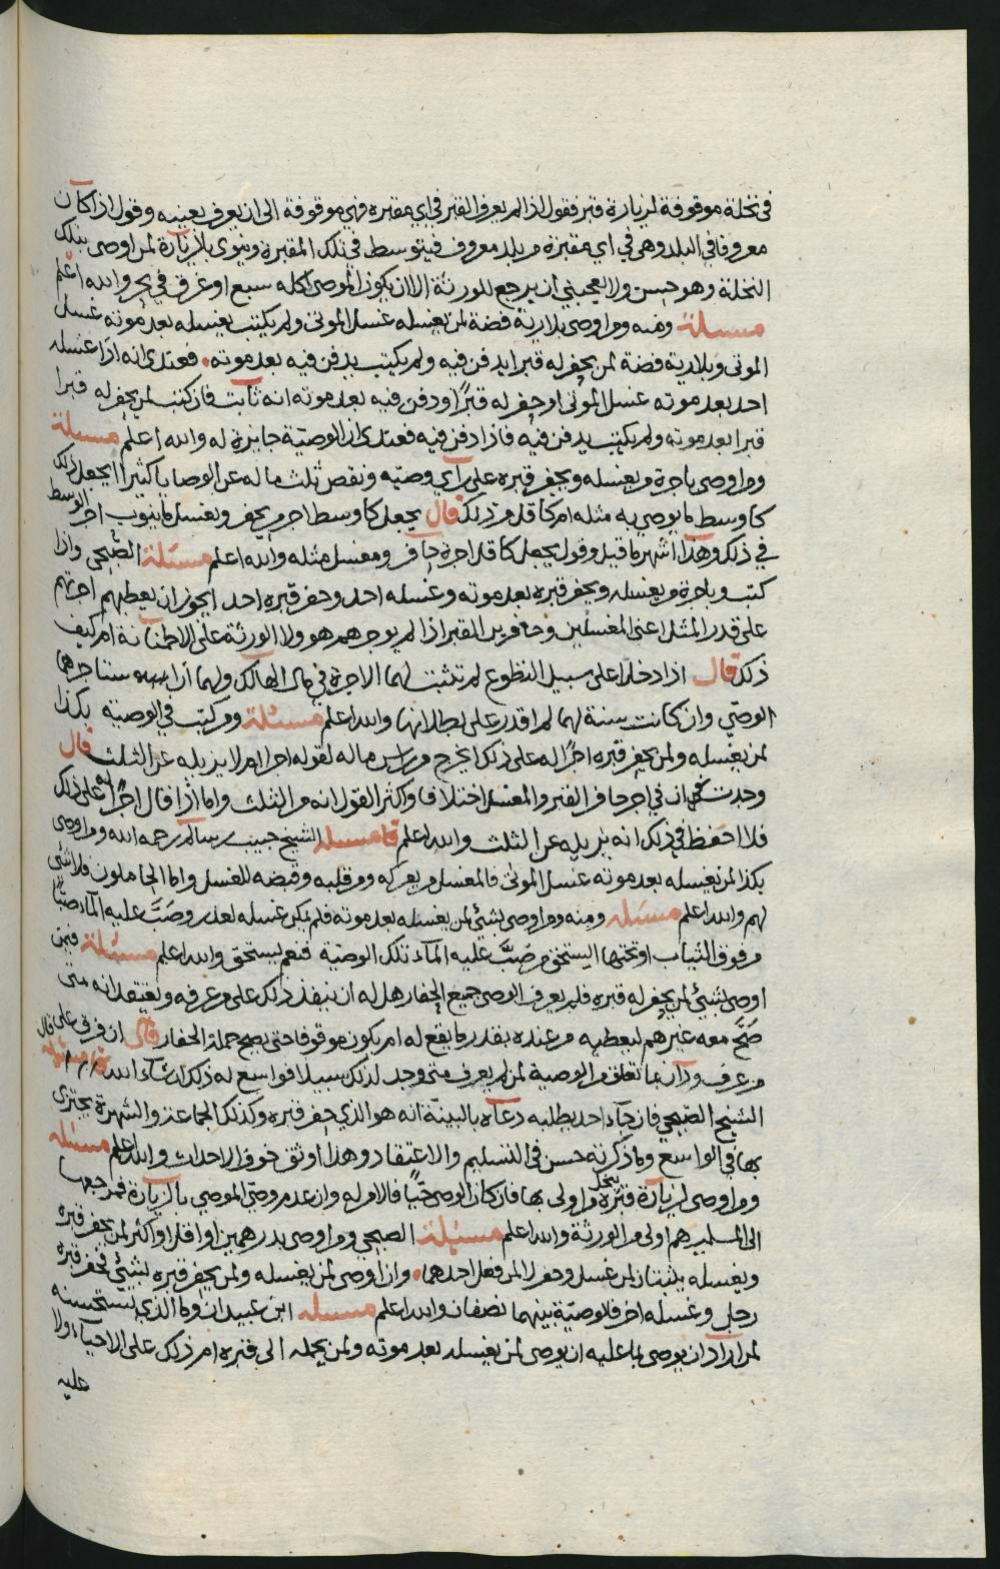 في نخلة موقوفة لزيارة قبر فقول اذا لم يعرف القبر في اي مقبره فهي موقوفة الى ان يعرف بعينه وقول اذا كان
معروفا في البلد وهي في اي مقبرة من بلد معروف فيتوسط في تلك المقبرة وينوي بالزيارة لمن اوصى بتلك
النخلة وهو حسن ولا يعجبني ان يرجع للورثة الا ان يكون الموصى اكله سبع او غرق في بحر والله اعلم
مسئلة ومنه ومن اوصى بلارية فضة لمن يغسله غسل الموتى ولم يكتب يغسله بعد موته غسل
الموتى وبلارية فضة لمن يحفر له قبرا يدفن فيه ولم يكتب يدفن فيه بعد موته فعندي انه اذا غسله
احد بعد موته غسل الموتى او حفر له قبرًا ودفن فيه بعد موته انه ثابت فان كتب لمن يحفر له قبرا
قبرا بعد موته ولم يكتب يدفن فيه فاذا دفن فيه فعندي ان الوصية جايزة له والله اعلم مسئلة
ومن اوصى باجرة من يغسله ويحفر قبره على راي وصيه ونقص ثلث ماله عن الوصايا كثيرا ايجعل ذلك
كاوسط ما يوصي به مثله ام كاقل من ذلك قال يجعل كاوسط اجر من يحفر ويغسل ما ينوب اجر الوسط
في ذلك وهذا اشهر ما قيل وقول يجعل كاقل اجرة حافر ومغسل مثله والله اعلم مسئلة الصبحي واذا
كتب وباجرة من يغسله ويحفر قبره بعد موته وغسله احد وحفر قبره احد ايجوز ان يعطيهم اجرتهم
على قدر المثل اعني المغسلين وحافرين القبر اذا لم يوجرهم هو ولا الورثة على الاطمنانة ام كيف
ذلك قال اذا دخلا على سبيل التطوع لم تثبت لهما الاجرة في مال الهالك ولهما اذا استاجرهما
الوصي وان كانت سنة لهما لم اقدر على بطلانها والله اعلم مسئلة ومن كتب في الوصية بكذا
لمن يغسله ولمن يحفر قبره اجرًا له على ذلك ايخرج من راس ماله لقوله اجرا ام لا يزيله عن الثلث قال
وجدت في اجر حافر القبر والمغسل اختلاف واكثر القول انه من الثلث واما اذا قال اجرًا له على ذلك
فلا احفظ في ذلك انه يزيله عن الثلث والله اعلم مسئله الشيخ حبيب بن سالم رحمه الله ومن اوصى
بكذا لمن يغسله بعد موته غسل الموتى فالمغسل من يعركه ومن قلبه وقبضه للغسل واما الحاملون فلا شئ
لهم والله اعلم مسئله ومنه ومن اوصى بشئ لمن يغسله بعد موته فلم يمكن غسله لعذر وصَبَّ عليه الماء صبًا
من فوق الثياب او تحتها ايستحق من صَبَّ عليه الماء تلك الوصية فنعم يستحق والله اعلم مسئلة فيمن
اوصى بشئ لمن يحفر له قبره فلم يعرف الوصي جميع الحفار هل له ان ينفذ ذلك على من عرفه ويعتقد انه متى
صَحَّ معه غيرهم ليعطيه من عنده بقدر ما يقع له ام يكون موقوفا حتى يصح جملة الحفار قال ان فرق على
من عرف ودان بما تعلق من الوصية لمن لم يعرف متى وجد لذلك سبيلا فواسع له ذلك ان شاء الله مسئلة قال
الشيخ الصبحي فان جاء احد يطلبه دعاه بالبينة انه هو الذي حفر قبره وكذلك الجماعة والشهرة يجتزي
بها في الواسع وما ذكرته حسن في التسليم والاعتقاد وهذا اوثق خوف الاحداث والله اعلم مسئله
ومن اوصى لزيارة قبره بنخل من اولى بها فان كان الوصي حيًا فالامر له وان عدم وصي الموصي بالزيارة فمرجعها
الى المسلمين هم اولى من الورثة والله اعلم مسئلة الصبحي ومن اوصى بدرهمين او اقل او اكثر لمن يحفر قبره
ويغسله يثبتان لمن غسل وحفر لا لمن فعل احدهما وان اوصى لمن يغسله ولمن يحفر قبره بشئ فحفر قبره
رجل وغسله اخر فالوصية بينهما نصفان والله اعلم مسئله ابن عبيدان وما الذي تستحسنه
لمن اراد ان يوصي بما عليه ان يوصى لمن يغسله بعد موته ولمن يحمله الى قبره ام ذلك على الاحياء ولا
عليه